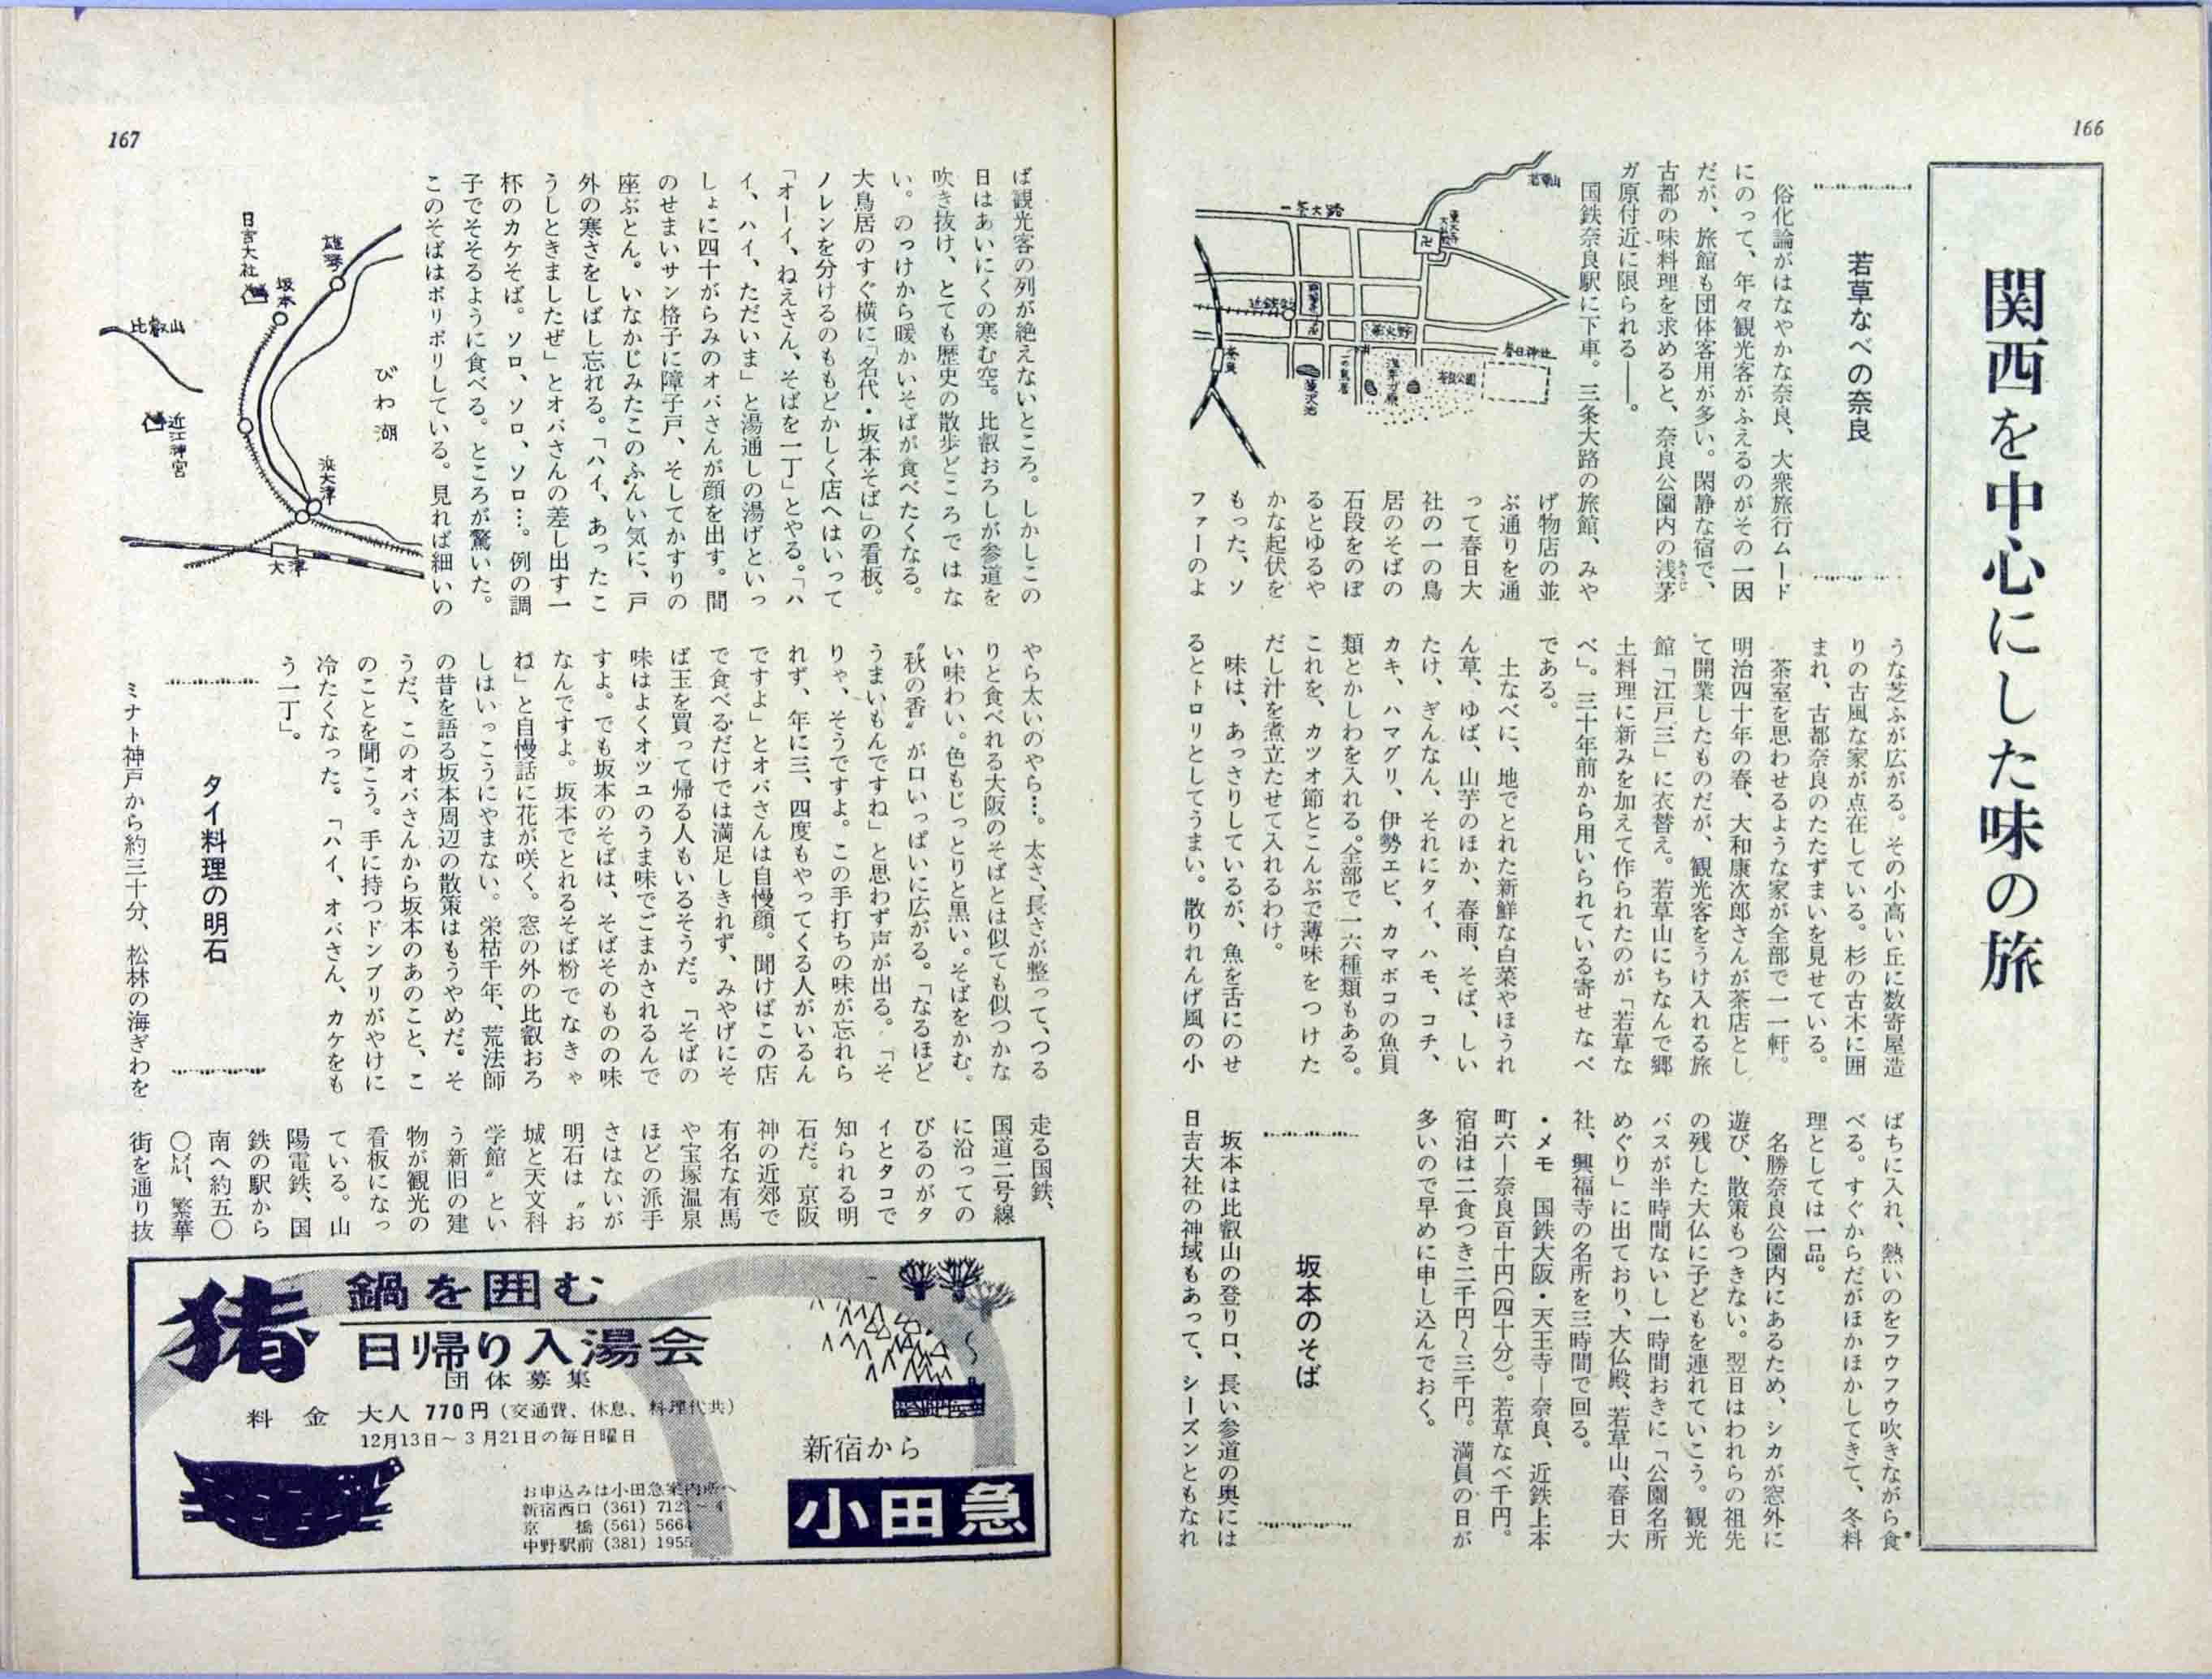 166
関西を中心にした味の旅
若草なべの奈良
俗化論がはなやかな奈良、大衆旅行ムード
にのって、年々観光客がふえるのがその一因
だが、旅館も団体客用が多い。閑静な宿で、
古都の味料理を求めると、奈良公園内の浅茅
あさじ
ガ原付近に限られる——。
国鉄奈良駅に下車。三条大路の旅館、みや
げ物店の並
ぶ通りを通
って春日大
社の一の鳥
居のそばの
石段をのぼ
るとゆるや
かな起伏を
もった、ソ
ファーのよ
若草山
一条大路
卍
近鉄
春日神社
奈良公園
奈良
うな芝ふが広がる。その小高い丘に数寄屋造
りの古風な家が点在している。杉の古木に囲
まれ、古都奈良のたたずまいを見せている。
茶室を思わせるような家が全部で一一軒。
明治四十年の春、大和康次郎さんが茶店とし
て開業したものだが、観光客をうけ入れる旅
館「江戸三」に衣替え。若草山にちなんで郷
土料理に新みを加えて作られたのが「若草な
べ」。三十年前から用いられている寄せなべ
である。
土なべに、地でとれた新鮮な白菜やほうれ
ん草、ゆば、山芋のほか、春雨、そば、しい
たけ、ぎんなん、それにタイ、ハモ、コチ、
カキ、ハマグリ、伊勢エビ、カマボコの魚貝
類とかしわを入れる。全部で一六種類もある。
これを、カツオ節とこんぶで薄味をつけた
だし汁を煮立たせて入れるわけ。
味は、あっさりしているが、魚を舌にのせ
るとトロリとしてうまい。散りれんげ風の小
ばちに入れ、熱いのをフウフウ吹きながら食
べる。すぐからだがほかほかしてきて、冬料
理としては一品。
名勝奈良公園内にあるため、シカが窓外に
遊び、散策もつきない。翌日はわれらの祖先
の残した大仏に子どもを連れていこう。観光
バスが半時間ないし一時間おきに「公園名所
めぐり」に出ており、大仏殿、若草山、春日大
社、興福寺の名所を三時間で回る。
・メモ　国鉄大阪・天王寺—奈良、近鉄上本
町六—奈良百十円（四十分）。若草なべ千円。
宿泊は二食つき二千円〜三千円。満員の日が
多いので早めに申し込んでおく。
坂本のそば
坂本は比叡山の登り口、長い参道の奥には
日吉大社の神域もあって、シーズンともなれ
167
ば観光客の列が絶えないところ。しかしこの
日はあいにくの寒む空。比叡おろしが参道を
吹き抜け、とても歴史の散歩どころではな
い。のっけから暖かいそばが食べたくなる。
大鳥居のすぐ横に「名代・坂本そば」の看板。
ノレンを分けるのももどかしく店へはいって
「オーイ、ねえさん、そばを一丁」とやる。「ハ
イ、ハイ、ただいま」と湯通しの湯げといっ
しょに四十がらみのオバさんが顔を出す。間
のせまいサン格子に障子戸、そしてかすりの
座ぶとん。いなかじみたこのふんい気に、戸
外の寒さをしばし忘れる。「ハイ、あったこ
うしときましたぜ」とオバさんの差し出す一
杯のカケそば。ソロ、ソロ、ソロ…。例の調
子でそそるように食べる。ところが驚いた。
このそばはボリボリしている。見れば細いの
雄琴
びわ湖
日吉大社
坂本
比叡山
近江神宮
浜大津
大津
やら太いのやら…。太さ、長さが整って、つる
りと食べれる大阪のそばとは似ても似つかな
い味わい。色もじっとりと黒い。そばをかむ。
〝秋の香〟が口いっぱいに広がる。「なるほど
うまいもんですね」と思わず声が出る。「そ
りゃ、そうですよ。この手打ちの味が忘れら
れず、年に三、四度もやってくる人がいるん
ですよ」とオバさんは自慢顔。聞けばこの店
で食べるだけでは満足しきれず、みやげにそ
ば玉を買って帰る人もいるそうだ。「そばの
味はよくオツユのうま味でごまかされるんで
すよ。でも坂本のそばは、そばそのものの味
なんですよ。坂本でとれるそば粉でなきゃ
ね」と自慢話に花が咲く。窓の外の比叡おろ
しはいっこうにやまない。栄枯千年、荒法師
の昔を語る坂本周辺の散策はもうやめだ。そ
うだ、このオバさんから坂本のあのこと、こ
のことを聞こう。手に持つドンブリがやけに
冷たくなった。「ハイ、オバさん、カケをも
う一丁」。
タイ料理の明石
ミナト神戸から約三十分、松林の海ぎわを
走る国鉄、
国道二号線
に沿っての
びるのがタ
イとタコで
知られる明
石だ。京阪
神の近郊で
有名な有馬
や宝塚温泉
ほどの派手
さはないが
明石は〝お
城と天文科
学館〟とい
う新旧の建
物が観光の
看板になっ
ている。山
陽電鉄、国
鉄の駅から
南へ約五〇
〇㍍、繁華
街を通り抜
猪
鍋を囲む
日帰り入湯会
団体募集
料金　大人 770円（交通費、休息、料理代共）
12月13日〜3月21日の毎日曜日
お申込みは小田急案内所へ
新宿西口 (361) 7121〜4
京橋 (561) 5664
中野駅前 (381) 1955
新宿から
小田急